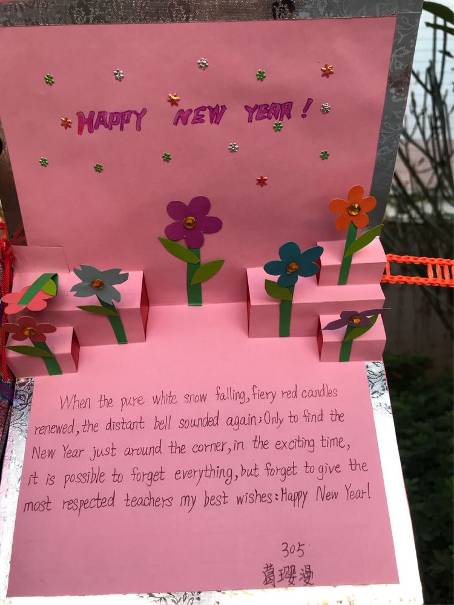 HAPPY NEW YEAR!
When the pure white snow falling, fiery red candles
renewed, the distant bell sounded again; Only to find the
New Year just around the corner, in the exciting time,
it is possible to forget everything, but forget to give the
most respected teachers my best wishes: Happy New Year!
305
葛璎漫